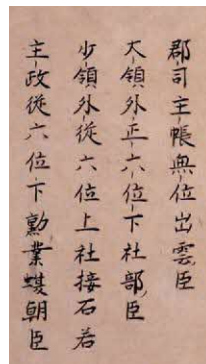 郡司主帳無位出雲臣
大領外正六位下社部臣
少領外從六位上社接石君
主政從六位下勳業蝮朝臣